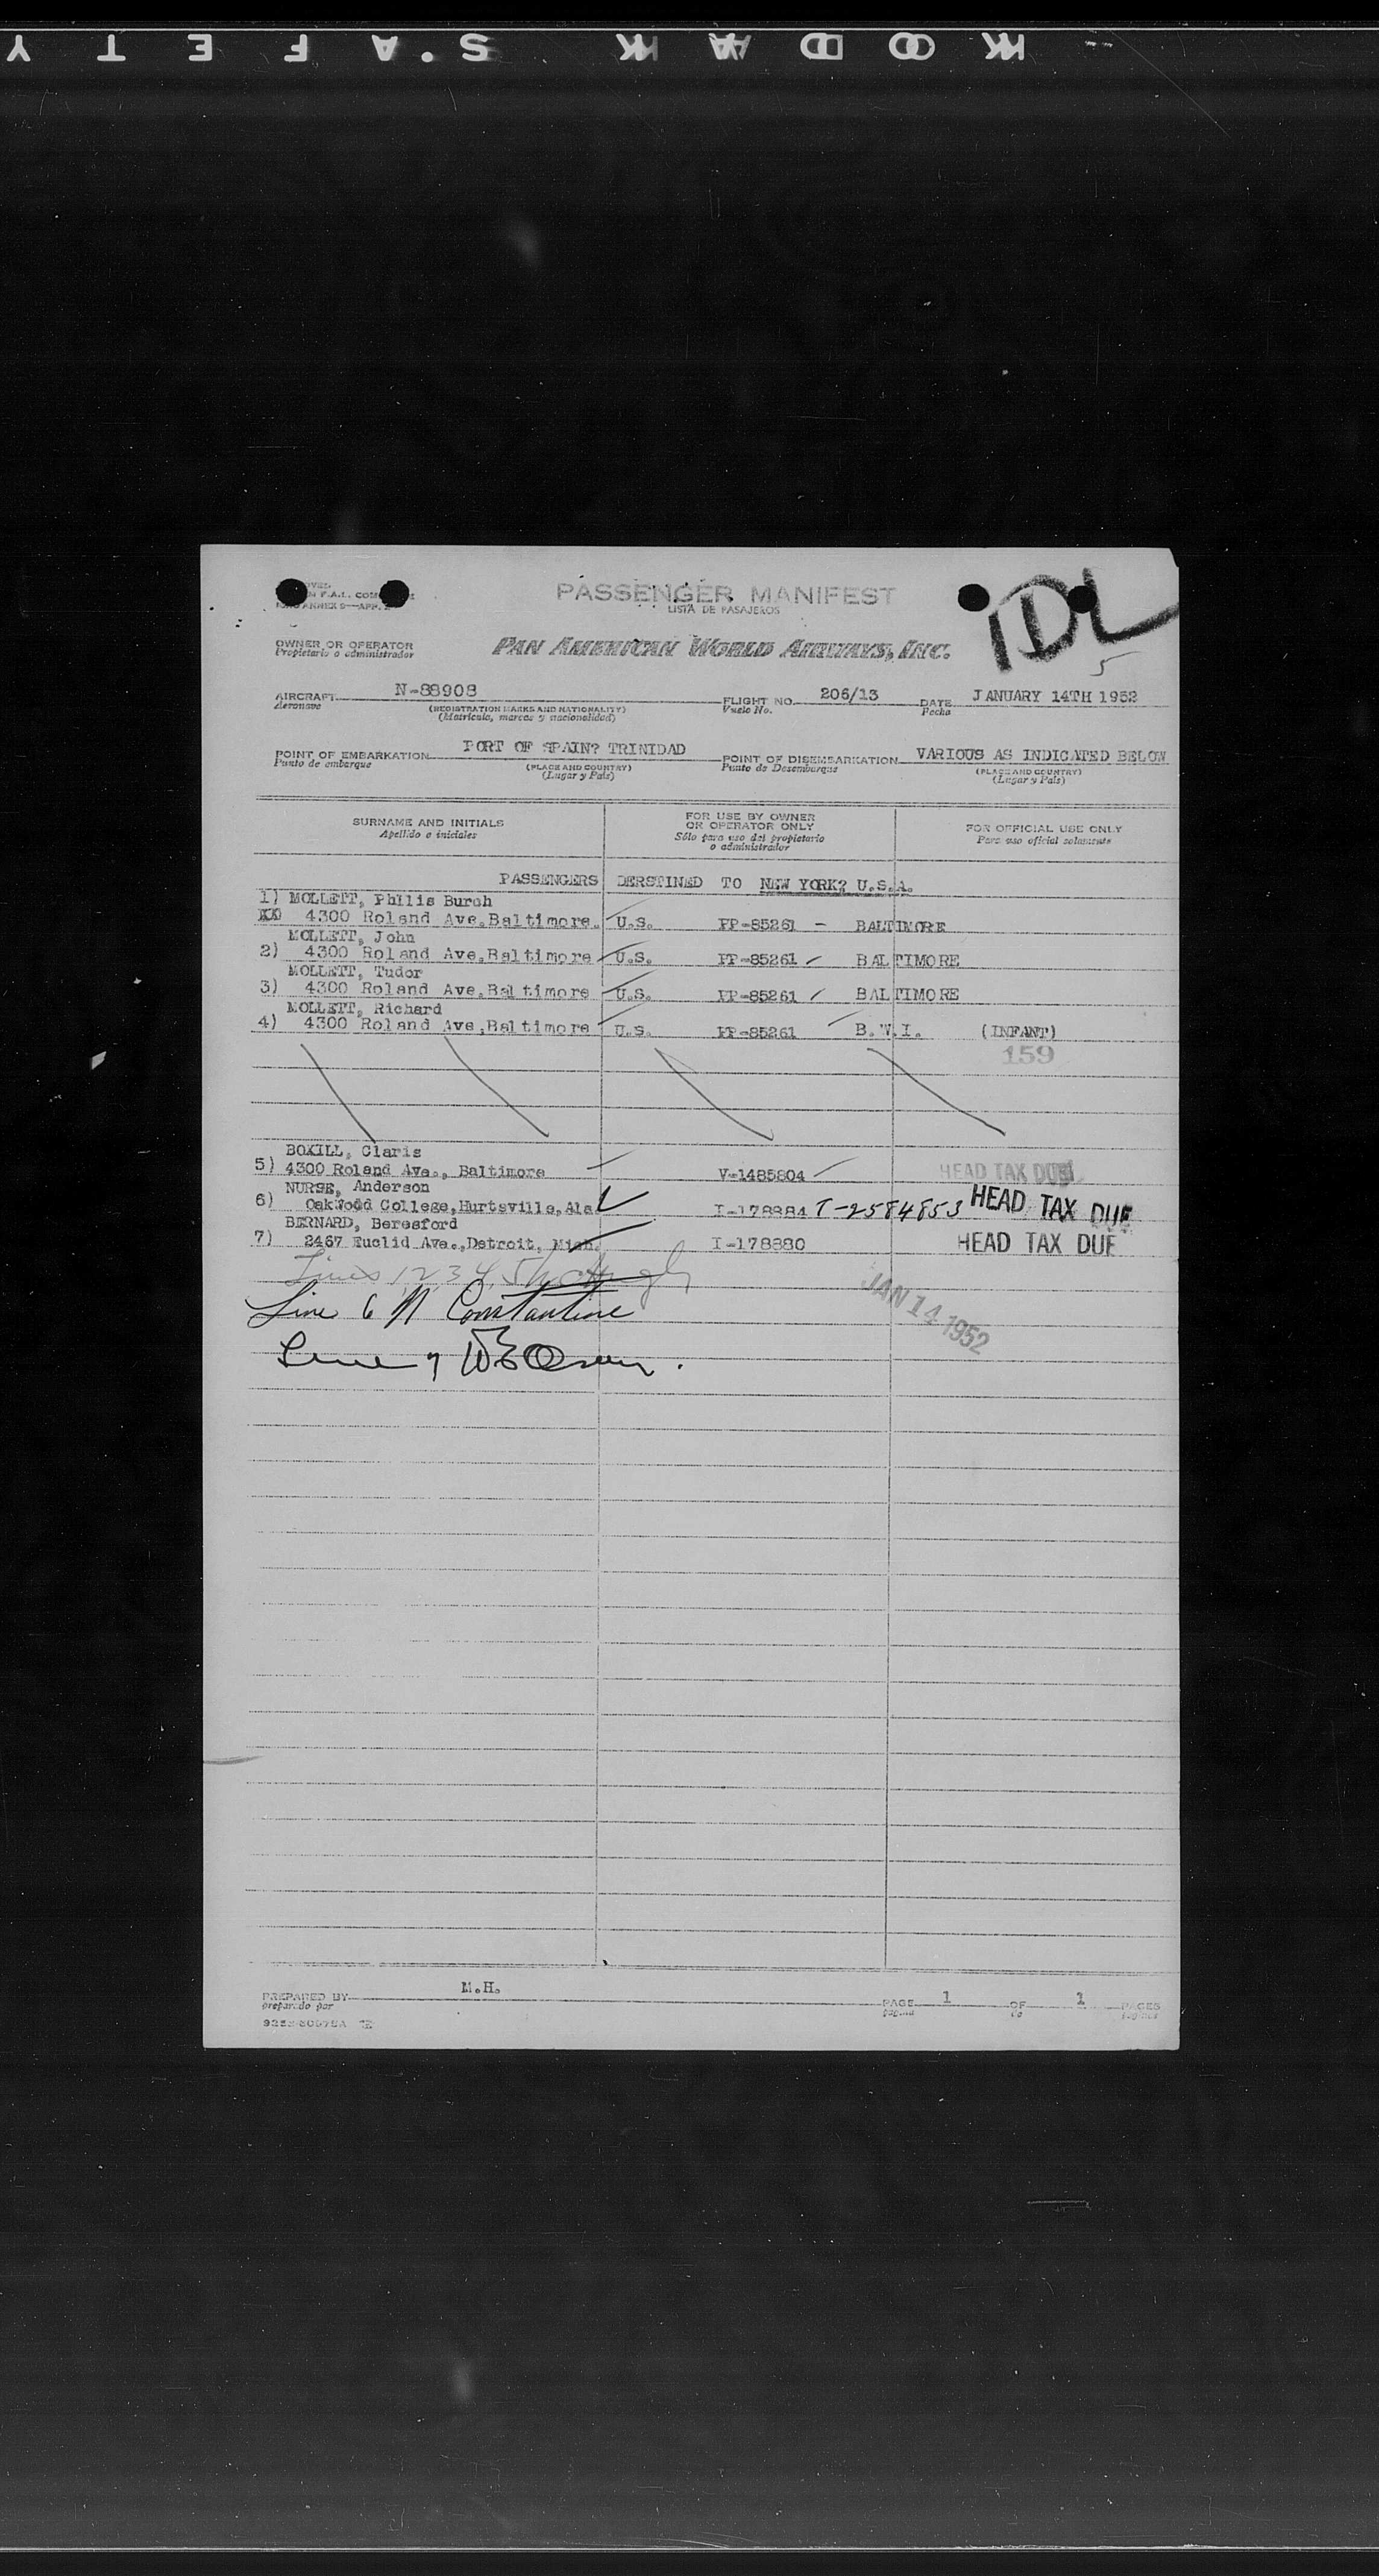 KODAK S.A F E T Y
PASSENGER MANIFEST
LISTA DE PASAJEROS
IDL
5
OWNER OR OPERATOR
Propietario o administrador
PAN AMERICAN WORLD AIRWAYS, INC.
AIRCRAFT N-88908 FLIGHT NO. 206/13 DATE JANUARY 14TH 1952
Aeronave (REGISTRATION MARKS AND NATIONALITY) Vuelo No. Fecha
(Matricula, marcas y nacionalidad)
POINT OF EMBARKATION PORT OF SPAIN? TRINIDAD POINT OF DISEMBARKATION VARIOUS AS INDICATED BELOW
Punto de embarque (PLACE AND COUNTRY) Punto de Desembarque (PLACE AND COUNTRY)
(Lugar y País) (Lugar y País)
SURNAME AND INITIALS
Apellido e iniciales
FOR USE BY OWNER
OR OPERATOR ONLY
Sólo para uso del propietario
o administrador
FOR OFFICIAL USE ONLY
Para uso oficial solamente
PASSENGERS DERSTINED TO NEW YORK? U.S.A.
1) MOLLETT, Philis Burch
XX) 4300 Roland Ave.Baltimore. U.S. PP-85261 - BALTIMORE
MOLLETT, John
2) 4300 Roland Ave.Baltimore U.S. PP-85261 BALTIMORE
MOLLETT, Tudor
3) 4300 Roland Ave.Baltimore U.S. PP-85261 BALTIMORE
MOLLETT, Richard
4) 4300 Roland Ave,Baltimore U.S. PP-85261 B.W.I. (INFANT)
159
BOXILL, Claris
5) 4300 Roland Ave., Baltimore V-1485804 HEAD TAX DUE
NURSE, Anderson
6) OakWood College,Hurtsville,Ala I-178884 T-2584853 HEAD TAX DUE
BERNARD, Beresford
7) 2467 Euclid Ave.,Detroit, Mich. I-178880 HEAD TAX DUE
Lines 1 2 3 4 5
JAN 14 1952
Line 6 N Constantine
Line 7
PREPARED BY M.H. PAGE 1 OF 1 PAGES
preparado por